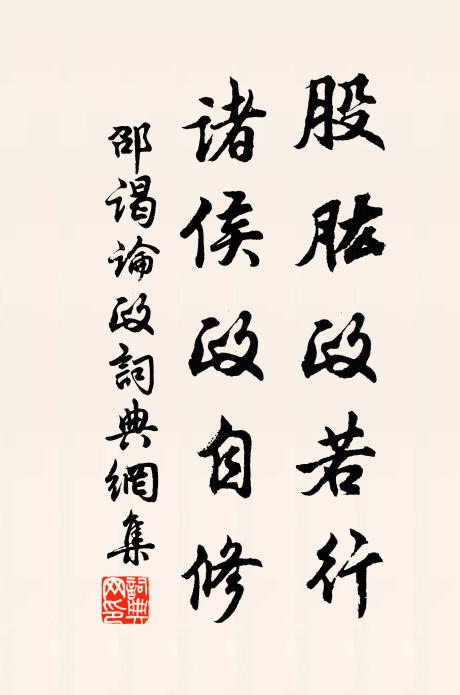 股肱政若行
諸侯政自修
邵謁論政詞典網集
詞典
网印